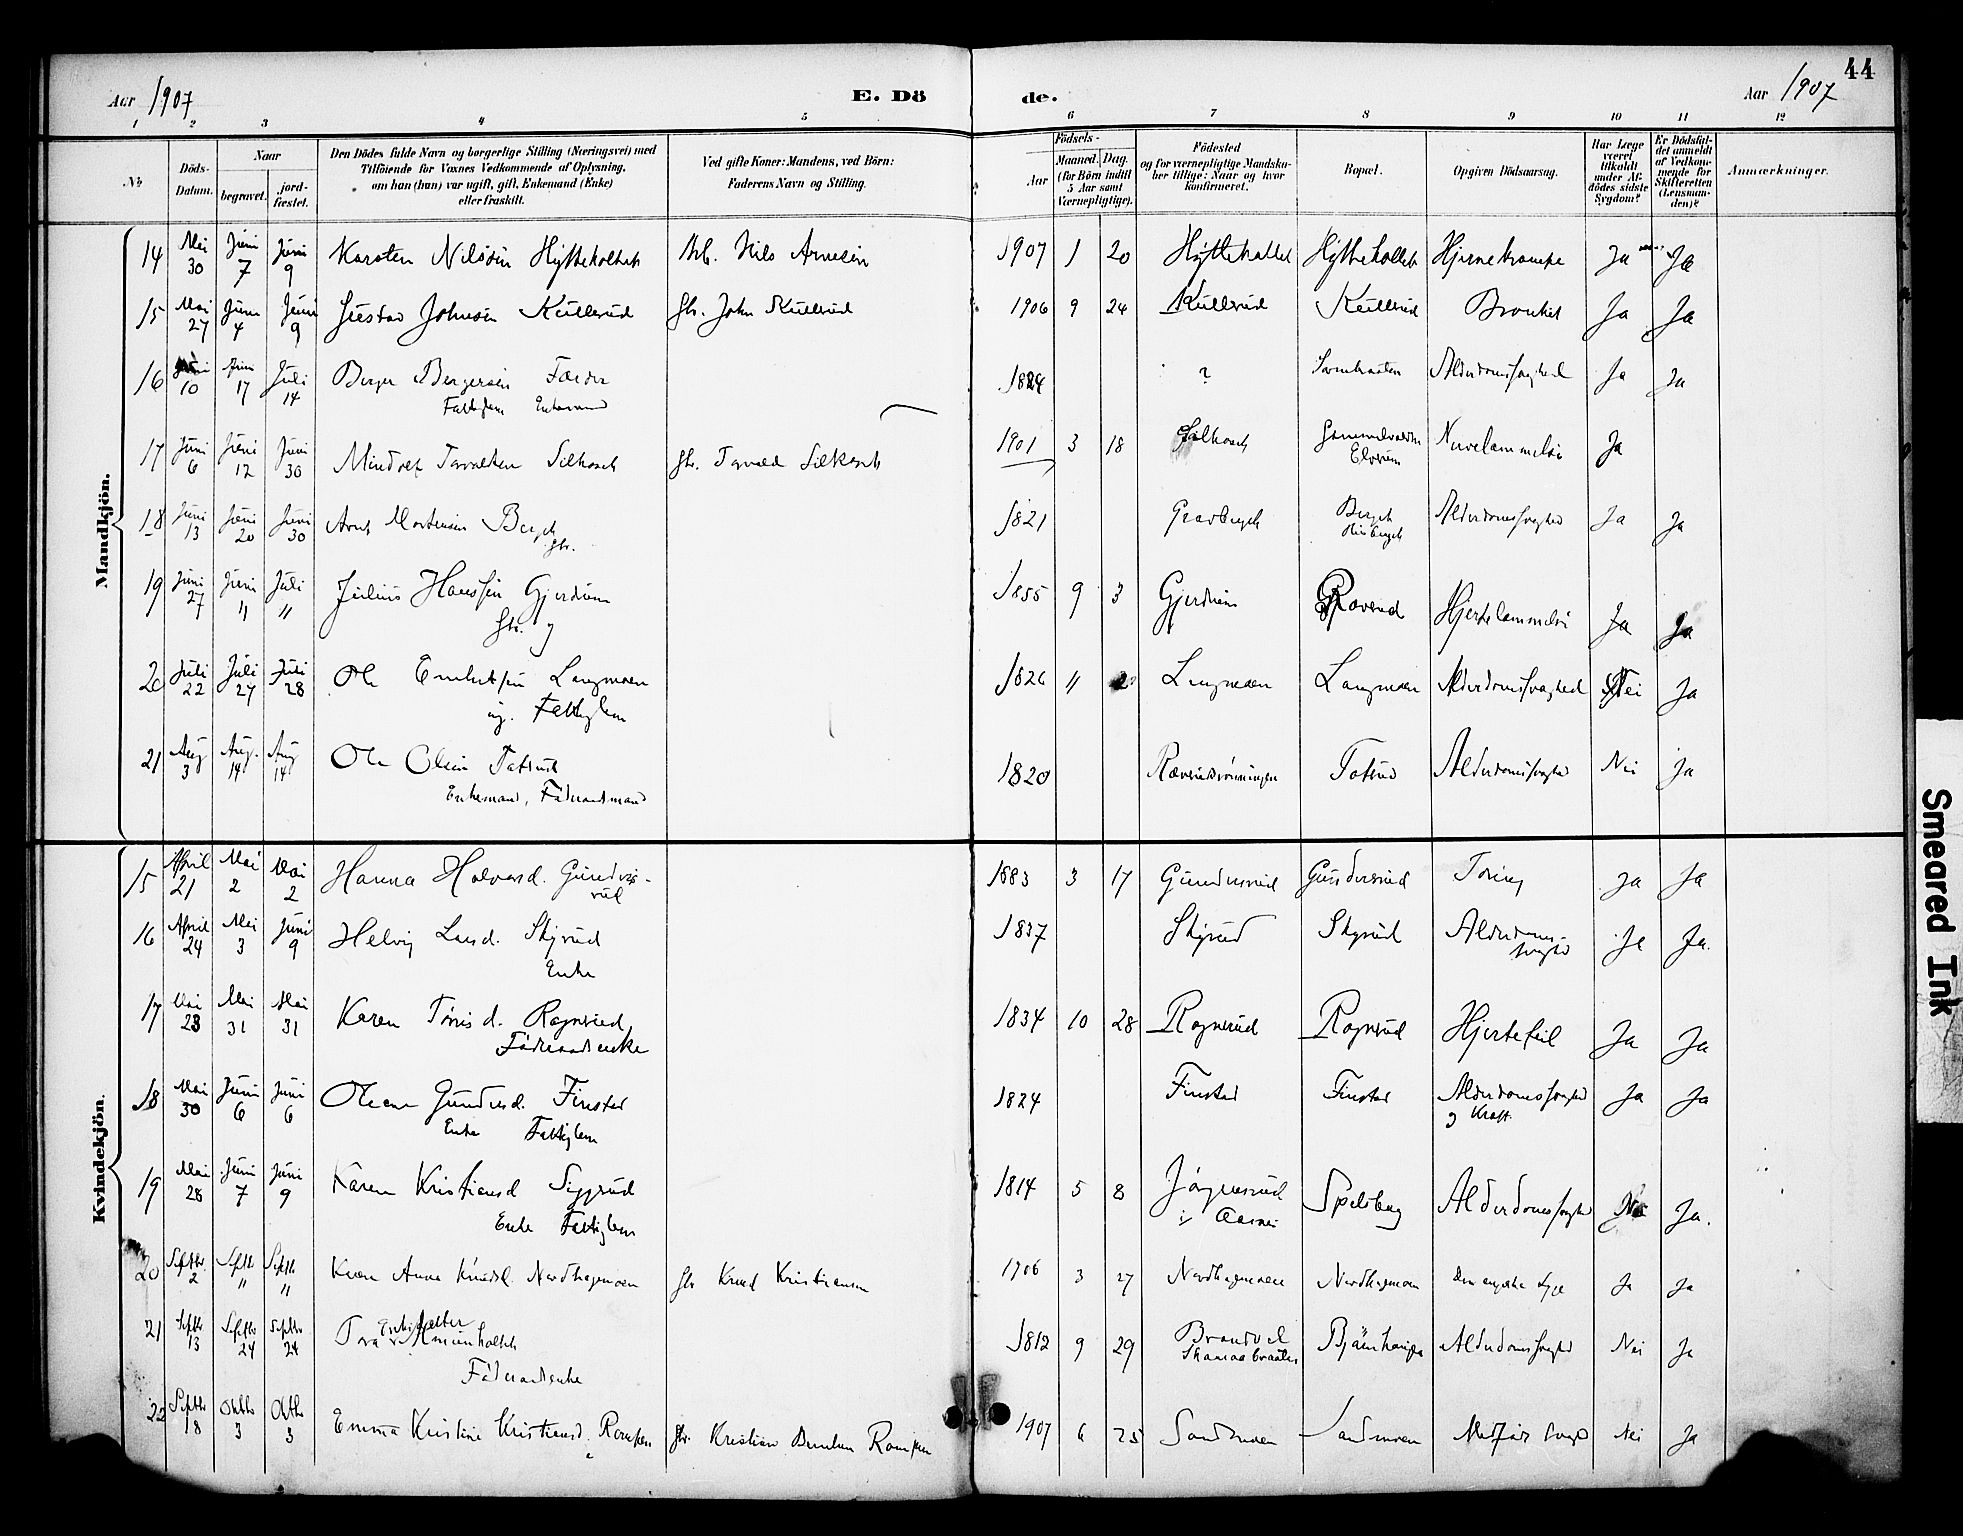 44
Aar 1907 E. Dö de. Aar 1907
1 2 3 4 5 6 7 8 9 10 11 12
No Döds-Datum. Naar begravet. jord-fæstet. Den Dödes fulde Navn og borgerlige Stilling (Næringsvei) med Tilföiende for Voxnes Vedkommende af Oplysning, om han (hun) var ugift, gift, Enkemand (Enke) eller fraskilt. Ved gifte Koner: Mandens, ved Börn: Faderens Navn og Stilling. Födsels- Aar Maaned. Dag. (for Börn indtil 5 Aar samt Værnepligtige). Födested og for værnepligtige Mandskaber tillige: Naar og hvor konfirmeret. Bopæl. Opgiven Dödsaarsag. Har Læge været tilkaldt under Afdödes sidste Sygdom? Er Dödsfaldet anmeldt af Vedkommende for Skifteretten (Lensmanden)? Anmærkninger.
Mandkjön.
14 Mai 30 Juni 7 Juni 9 Karsten Nilssön Hytteholtet Nils Arnesen 1907 1 20 Hytteholtet Hytteholtet Hjernekrampe Ja Ja
15 Mai 27 Juni 4 Juni 9 Gustav Johnsen Kullerud Gbr. John Kullerud 1906 9 24 Kullerud Kullerud Bronkit Ja Ja
16 10 Juni 17 Juli 14 Berger Bergersen Fattiglem Enkemand 1824 ? Alderdomssvaghed Ja Ja
17 Juni 6 Juni 12 Juni 30 Gbr. 1901 3 18 Elverum Ja
18 Juni 13 Juni 20 Juni 30 Arne Mortensen Bergh Gbr. 1821 Gravbergh Bergh Alderdomssvaghed Ja Ja
19 Juni 27 Juni 11 Juli 11 Julius Hanssen Gjerdrum Gbr. 1855 9 3 Gjerdrum Hjertelammelse Ja Ja
20 Juli 22 Juli 27 Juli 28 Ole Langmoen ug. Fattiglem 1826 11 2 Langmoen Langmoen Alderdomssvaghed Nei Ja
21 Aug 3 Aug. 14 Aug 14 Ole Olsen Tatrud Enkemand, Föderaadsmand 1820 Alderdomssvaghed Nei Ja
Kvindekjön.
15 April 21 Mai 2 Mai 2 Hanna Halvorsd. Gundersrud 1883 3 17 Gundersrud Gundersrud Tæring Ja Ja
16 April 24 Mai 3 Juni 9 Helvig Larsd. Skyrud Enke 1837 Skyrud Skyrud Alderdomssvaghed Ja Ja.
17 Mai 23 Mai 31 Mai 31 Karen Törrisd. Rognerud, Föderaadsenke 1834 10 28 Rognerud Rognerud Hjertefeil Ja Ja
18 Mai 30 Juni 6 Juni 6 Oleane Gundersd. Finstad Enke Fattiglem 1824 Finstad Finstad Alderdomssvaghed og Kræft Ja Ja
19 Mai 28 Juni 7 Juni 9 Karen Kristiansd Siggerud Enke Fattiglem 1814 5 8 Jörgensrud i Aasnes Spelsberg Alderdomssvaghed Nei Ja.
20 Septbr. 2 Septbr 11 Septbr. 11 Karen Anna Knudsd. Nordhagmoen Gbr Knud Kristiansen 1906 3 27 Nordhagmoen Nordhagmoen Den engelske Syge Ja Ja
21 Septbr 13 Septbr 24 Septbr 24 Föderaadsenke 1812 9 29 Brandval Alderdomssvaghed Nei Ja
22 Septbr 18 Oktbr 3 Oktbr 3 Emma Kristine Kristiansd. Rompen Gbr. Kristian Rompen 1907 6 25 Sandmoen Sandmoen Medfödt Svagh. Nei Ja
Smeared Ink